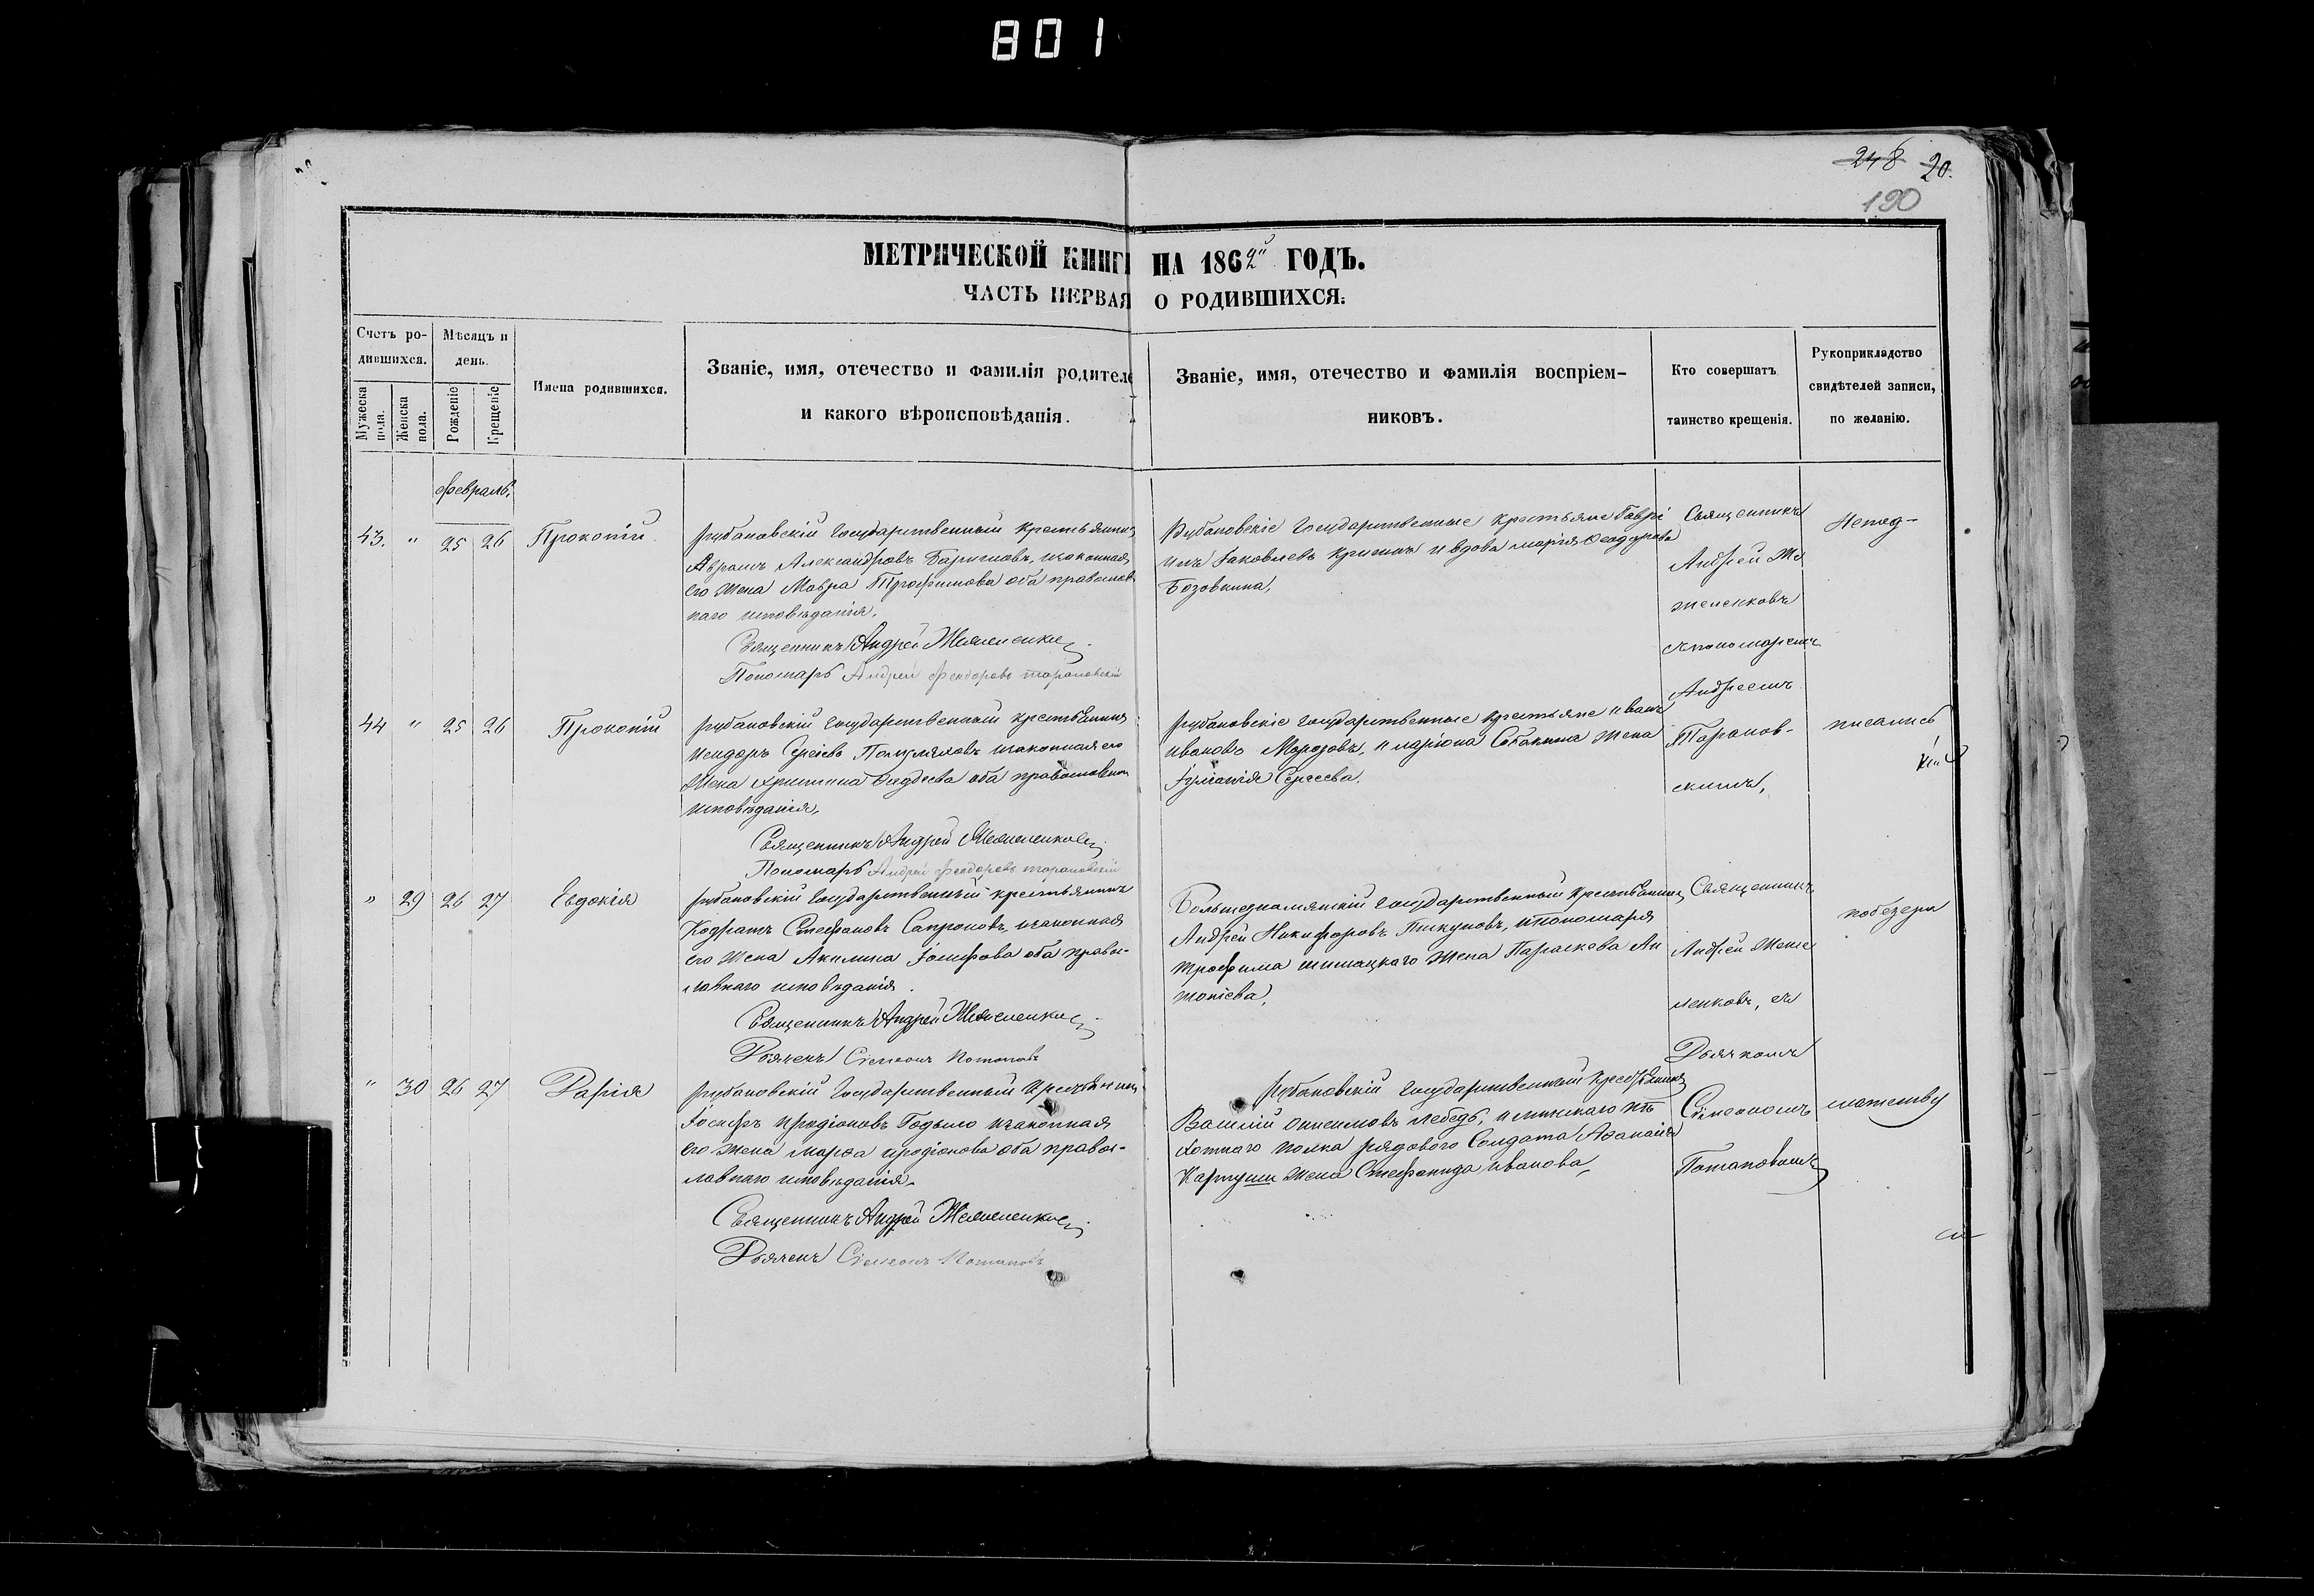 801
248 20.
190
МЕТРИЧЕСКОЙ КНИГИ НА 1862й ГОДЪ.
ЧАСТЬ ПЕРВАЯ О РОДИВШИХСЯ.
Счетъ ро-
дившихся.
Мужеска пола.
Женска пола.
Мѣсяцъ и
день.
Рожденіе
Крещеніе
Имена родившихся.
Званіе, имя, отечество и фамилія родителе
и какого вѣроисповѣданія.
Званіе, имя, отечество и фамилія воспріем-
никовъ.
Кто совершатъ
таинство крещенія.
Рукоприкладство
свидѣтелей записи,
по желанію.
Февраль.
43. " 25 26 Прокопій
Рубановскій Государственный крестьянинъ
Аврамъ Александровъ изаконная
его жена Мавра Трофимова оба православ
наго исповѣданія.
Священникъ Андрей
Пономарь Андрей Феодоровъ Тарановскій
Рубановскіе Государственные крестьяне Гаврі
илъ Іаковлевъ и вдова Марія Феодорова
Священникъ
Андрей Же
меленковъ
спономаремъ
Андреемъ
Таранов-
скимъ,
44 " 25 26 Прокопій
Рубановскій Государственный крестьянинъ
Сергіевъ изаконная его
жена Христина оба православнаго
исповѣданія,
Священникъ Андрей
Пономарь Андрей Феодоровъ Тарановскій
Рубановскіе Государственные крестьяне Иванъ
Ивановъ Морозовъ, и Ларіона Собакина жена
Сергеева.
" 29 26 27 Евдокія
Рубановскій Государственный крестьянинъ
Кодратъ Стефановъ Сапроновъ, изаконная
его жена Акилина Іосифова оба право-
славнаго исповѣданія.
Священникъ Андрей
Дьячекъ Сімеонъ Потаповъ
Большезнамянскій Государственный крестьянинъ
Андрей Никифоровъ Тикуновъ, ипономаря
Трофима жена Параскева Ан
тоніева,
Священникъ
Андрей
ленковъ, съ
Дьячкомъ
Сімеономъ
Потаповымъ
" 30 26 27 Дарія
Рубановскій Государственный крестьянинъ
Іосифъ Иродіоновъ изаконная
его жена Марѳа Иродіонова оба правос-
лавнаго исповѣданія.
Священникъ Андрей
Дьячекъ Сімеонъ Потаповъ
Рубановскій Государственный крестьянинъ
Василій Онисимовъ Лебедь, и минскаго пѣ
хотнаго полка рядового Солдата Аѳанасія
жена Стефанида Иванова,
Непод-
писались
побезгра
мотству